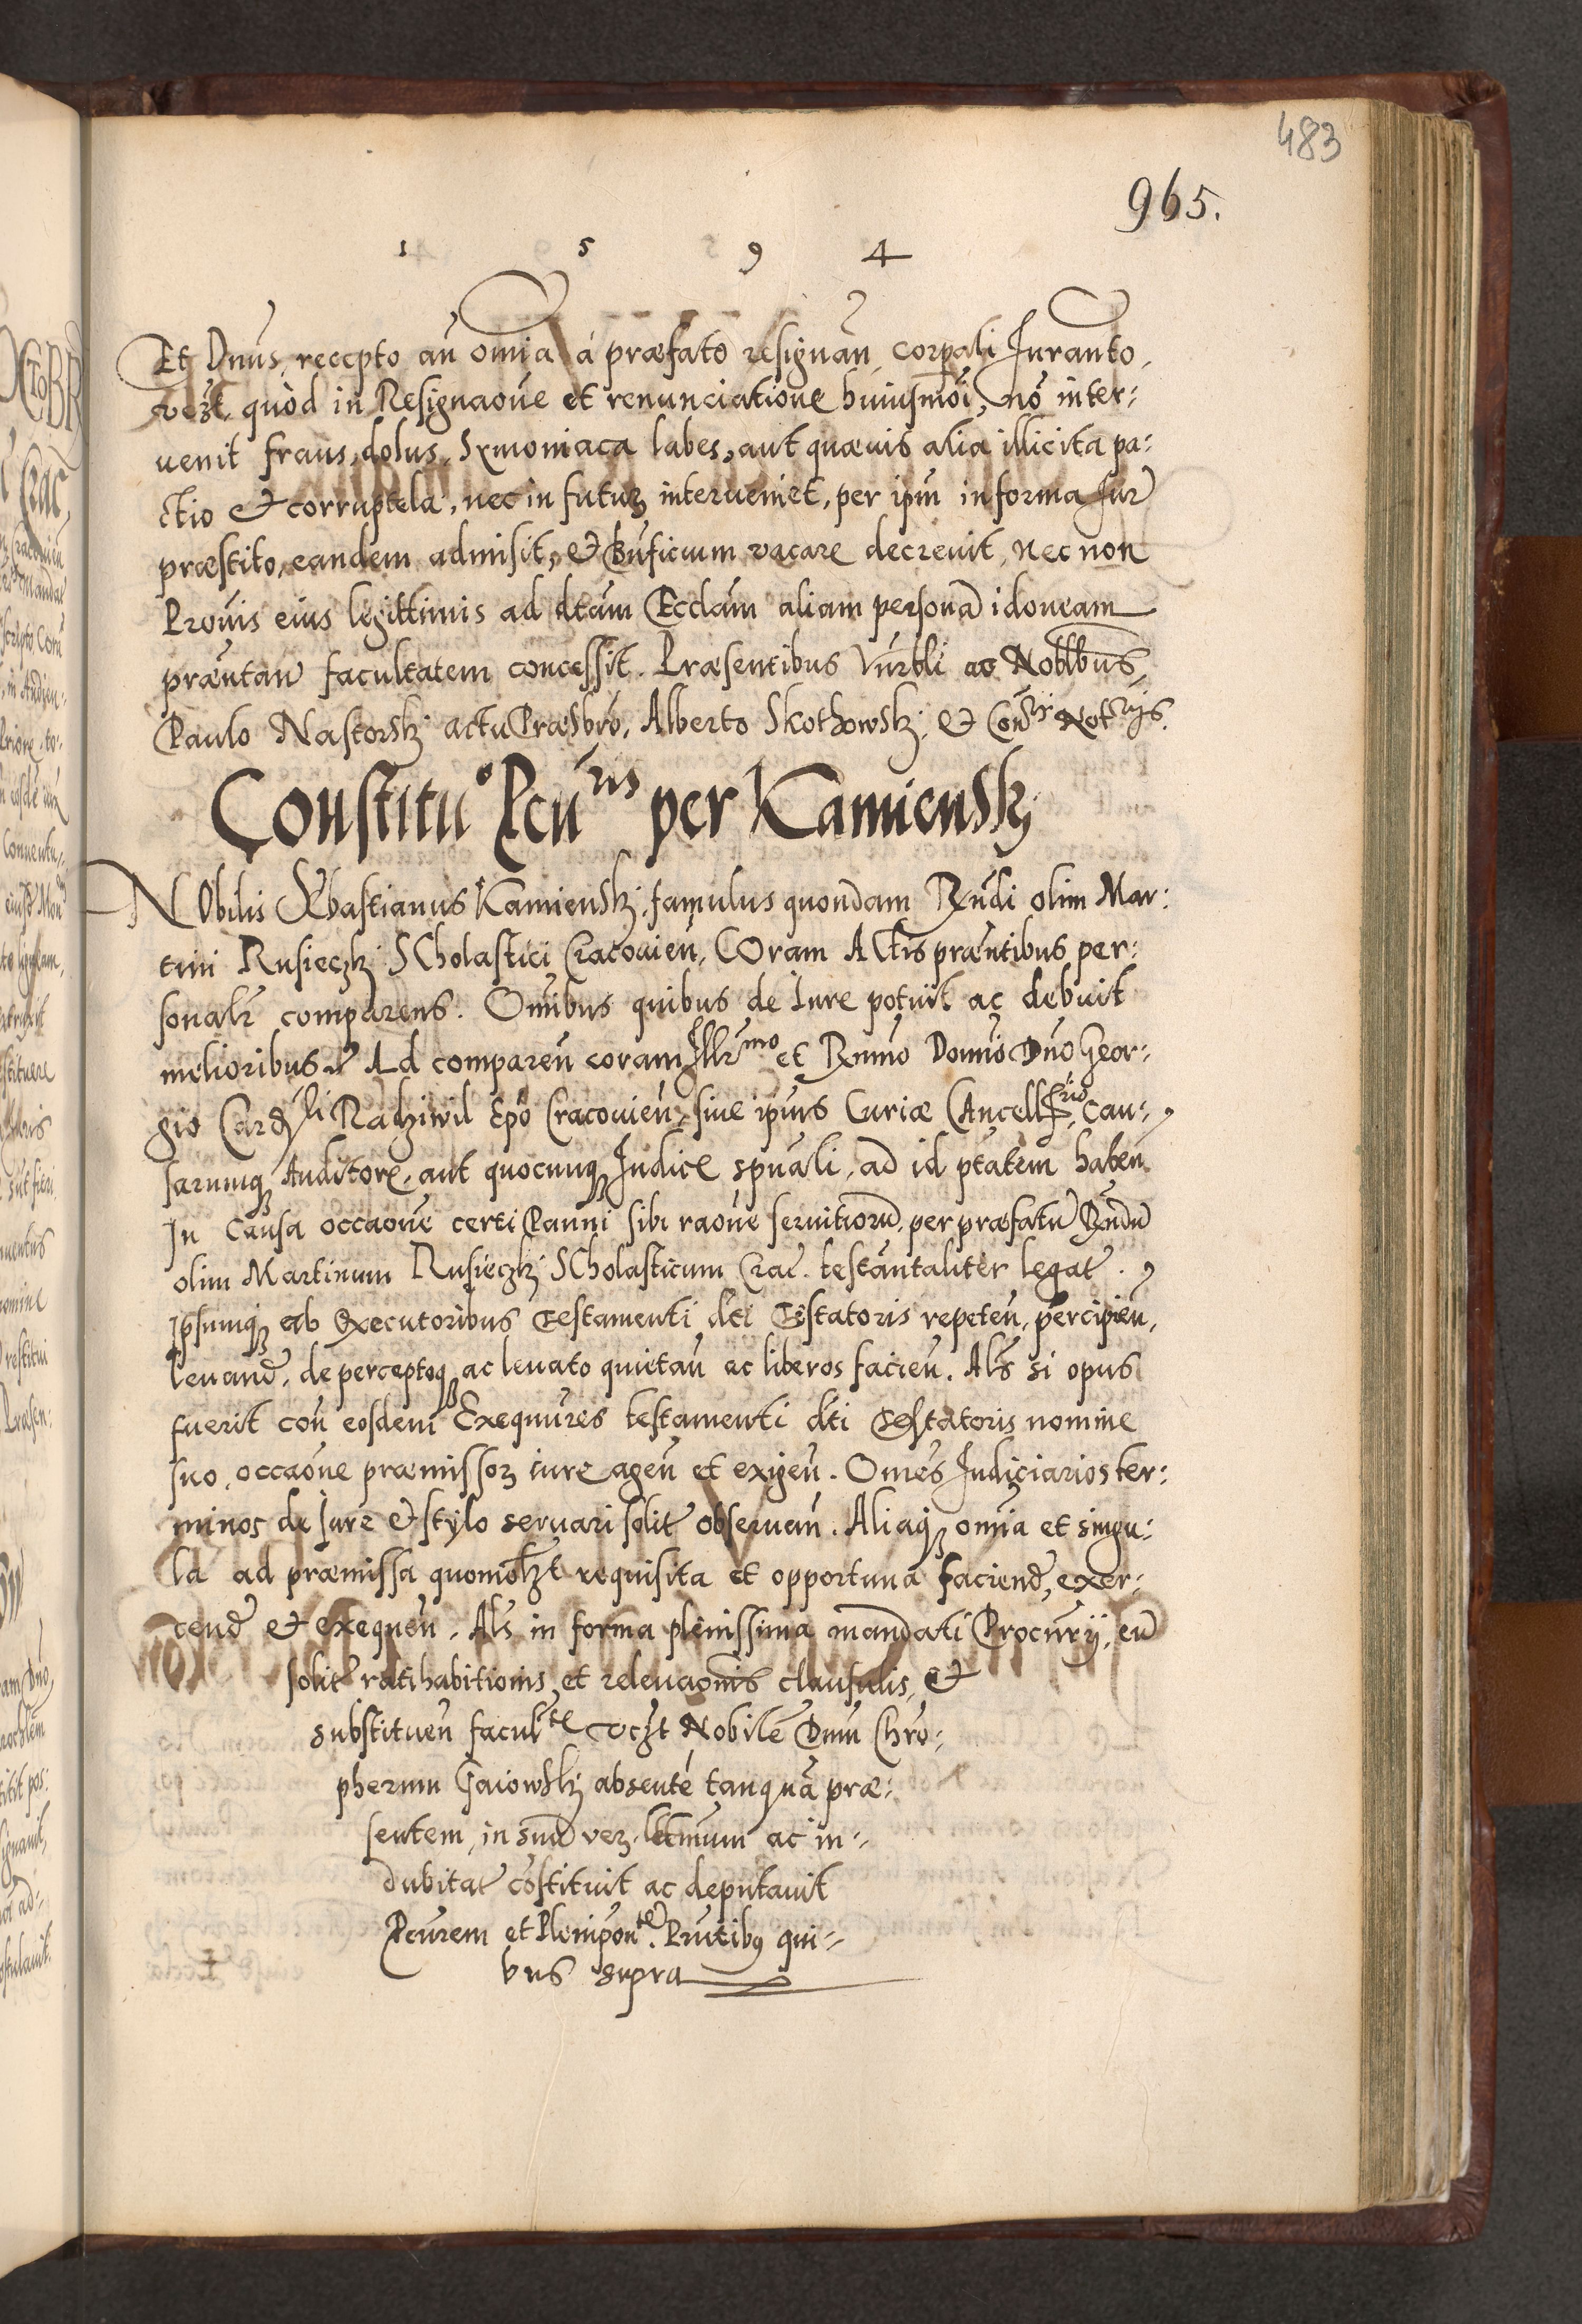 483
965.
1 5 9 4
Et Dnus, recepto an̄ omia à præfato resignan̄ corpali Juranto,
vezt quòd in Resignaōne et renunciatione huiusmōi, nō inter:
uenit fraus, dolus, Symoniaca labes, aut quæuis alia illicita pa:
ctio et corruptela, nec in futuꝝ interueniet, per ipm̄ in forma Jur
præstito, eandem admisit, et Bn̄ficium vacare decreuit, nec non
Pronis eius legittimis ad dtām Ecclam̄ aliam personā idoneam
præn̄tan̄ facultatem concessit. Præsentibus Vnrbli ac Noblbus,
Paulo Naskorskj actu Præsbro, Alberto Skothowskj, et Con Notrijs.
Constituo Pcuris per Kamienskj
NObilis Sebastianus Kamienskj, famulus quondam Rndi olim Mar:
tini Rusieczkj SCholastici Cracouien̄, COram ACtis præn̄tibus per:
sonalr comparens. Omibus quibus de Iure potuit ac debuit
melioribus Ad comparen̄ coram Illrmo et Rmmo Domno Dno Geor:
gio Cardli Radziwil Epō Cracouien̄, siue ipius Curiæ CAncellrio, Cau:
sarumqꝫ Auditore, aut quocunqꝫ Judice spuāli, ad id ptātem haben̄
In Causa occaōne certi Panni sibi raōne seruitiorū, per præfatū Rndū
olim Martinum Rusieczkj SCholasticum Crac. testāntaliter legat.
Ipsumqꝫ ab Executoribus testamenti dti Testatoris repeten̄, percipien̄,
leuand, de perceptoqꝫ ac leuato quietan̄ ac liberos facien̄. Als si opus
fuerit con̄ eosdem Exequures testamenti dti Testatoris nomine
suo, occaōne præmissoꝝ iure agen̄ et exigen̄. Omēs Judiciarios ter:
minos de Jure et stylo seruari solit obseruan̄. Aliaqꝫ omia et singu:
la ad præmissa quomolzt requisita et opportuna faciend, exer:
cend et exequen̄. Als in forma plenissima mandati Procurij, cū
solit ratihabitionis, et releuaōnis clausulis, et
substituen̄ facultte vezt Nobilē Dnm̄ Chro:
phermu Gaiowskj absentē tanquā præ:
sentem, in suū veꝝ. lttmum ac in:
dubitat cōstituit ac deputauit
Pcurem et Plenipon̄te. Prntibꝰ qui:
bus supra